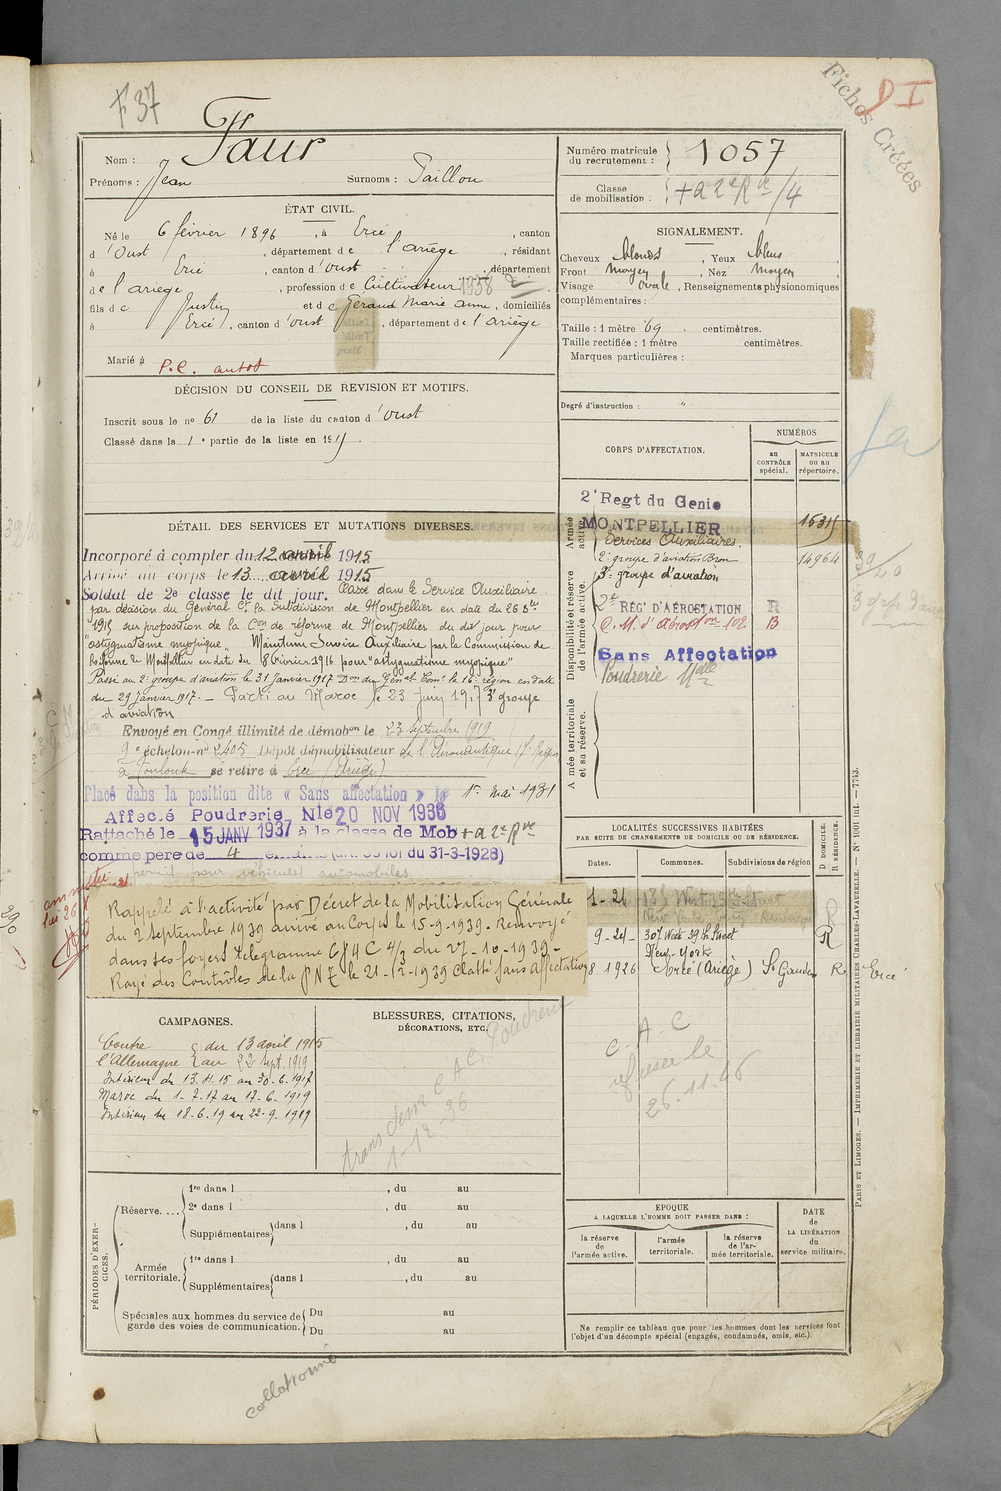 F 37
Fiches Créées
I
Faur
Nom :
Prénoms : Jean Surnoms : Paillou
Numéro matricule
du recrutement : 1057
Classe
de mobilisation : + a 2e Rve /4
ÉTAT CIVIL.
Né le 6 février 1896, à Ercé, canton
d'Oust, département de l'ariège, résidant
à Ercé, canton d'oust, département
de l'ariège, profession de Cultivateur 1938
fils de Justin et de Geraud Marie Anne, domiciliés
à Ercé, canton d'oust, département de l'ariège
Marié à P.C. autos
SIGNALEMENT.
Cheveux blonds, Yeux bleus
Front moyen, Nez moyen,
Visage ovale, Renseignements physionomiques
complémentaires :
Taille : 1 mètre 69 centimètres.
Taille rectifiée : 1 mètre centimètres.
Marques particulières :
Degré d'instruction : "
DÉCISION DU CONSEIL DE REVISION ET MOTIFS.
Inscrit sous le no 61 de la liste du canton d'Oust
Classé dans la 1e partie de la liste en 1915.
CORPS D'AFFECTATION.
NUMÉROS
au
CONTRÔLE
spécial.
MATRICULE
ou au
répertoire.
Armée
active.
2e Regt du Genie
MONTPELLIER 1631
Services Auxiliaires.
2e groupe d'aviation Bron 14964
Disponibilité et réserve
de l'armée active.
3e groupe d'aviation
2e RÉGt D'AÉROSTATION R
C.M. d'Aérostion 102 B
Sans Affectation
Poudrerie Nlle
Armée territoriale
et sa réserve.
DÉTAIL DES SERVICES ET MUTATIONS DIVERSES.
Incorporé à compter du 12 avril 1915
Arrivé au corps le 13 avril 1915
Soldat de 2e classe le dit jour. Classé dans le Service Auxiliaire
par décision du Général Ct la Subdivision de Montpellier en date du 26 8bre
1915 sur proposition de la Con de réforme de Montpellier du dit jour pour
"astygmatisme myopique" Maintenu Service Auxiliaire par la Commission de
Réforme de Montpellier en date du 8 Février 1916 pour "astygmatisme myopique"
Passé au 2e groupe d'aviation le 31 Janvier 1917 Don du Génal Comt la 16e région en date
du 29 Janvier 1917. - Parti au Maroc le 23 Juin 1917 3e groupe
d'aviation
Envoyé en Congé illimité de démobon le 23 Septembre 1919
9e échelon no 2405 Dépôt démobilisateur de l'Aéronautique
à Toulouse se retire à Ercé (Ariège)
Placé dans la position dite « Sans affectation » le 1er Mai 1931
Affecté Poudrerie Nle 20 NOV 1936
Rattaché le 15 JANV 1937 à la classe de Mob + a 2e Rve
comme père de 4 enfants (art. 58 loi du 31-3-1928)
permis pour véhicules automobiles
Rappelé à l'activité par Décret de la Mobilisation Générale
du 2 septembre 1939 arrivé au Corps le 15-9-1939. Renvoyé
dans ses foyers Télégramme 6784 C 4/3 du 27-10-1939 -
Rayé des Contrôles de la P N T le 21-12-1939 Classé sans affectation
LOCALITÉS SUCCESSIVES HABITÉES
PAR SUITE DE CHANGEMENTS DE DOMICILE OU DE RÉSIDENCE.
Dates. Communes. Subdivisions de région
D DOMICILE.
R RÉSIDENCE.
1-21 West Street R
New York
9-24- 307 West 39th Street R
New-York
8 1926 Ercé (Ariège) St Gaudens R Ercé
C. A. C
refusé le
26-11-46
CAMPAGNES.
Contre du 13 avril 1915
l'Allemagne au 22 Sept. 1919
Intérieur du 13.4.15 au 30-6.1917
Maroc du 1-7.17 au 17-6.1919
Intérieur du 18-6.19 au 22-9.1919
BLESSURES, CITATIONS,
DÉCORATIONS, ETC.
C A C. Poudrerie
1-12-36
PÉRIODES D'EXER-
CICES.
Réserve....
1re dans l , du au
2e dans l , du au
Supplémentaires dans l , du au
Armée
territoriale.
1re dans l , du au
Supplémentaires dans l , du au
Spéciales aux hommes du service de
garde des voies de communication.
Du au
Du au
ÉPOQUE
A LAQUELLE L'HOMME DOIT PASSER DANS :
la réserve
de
l'armée active.
l'armée
territoriale.
la réserve
de l'ar-
mée territoriale.
DATE
de
LA LIBÉRATION
du
service militaire.
Ne remplir ce tableau que pour les hommes dont les services font
l'objet d'un décompte spécial (engagés, condamnés, omis, etc.).
PARIS ET LIMOGES. — IMPRIMERIE ET LIBRAIRIE MILITAIRES CHARLES-LAVAUZELLE. — No 1001 int. — 7743.
collationné